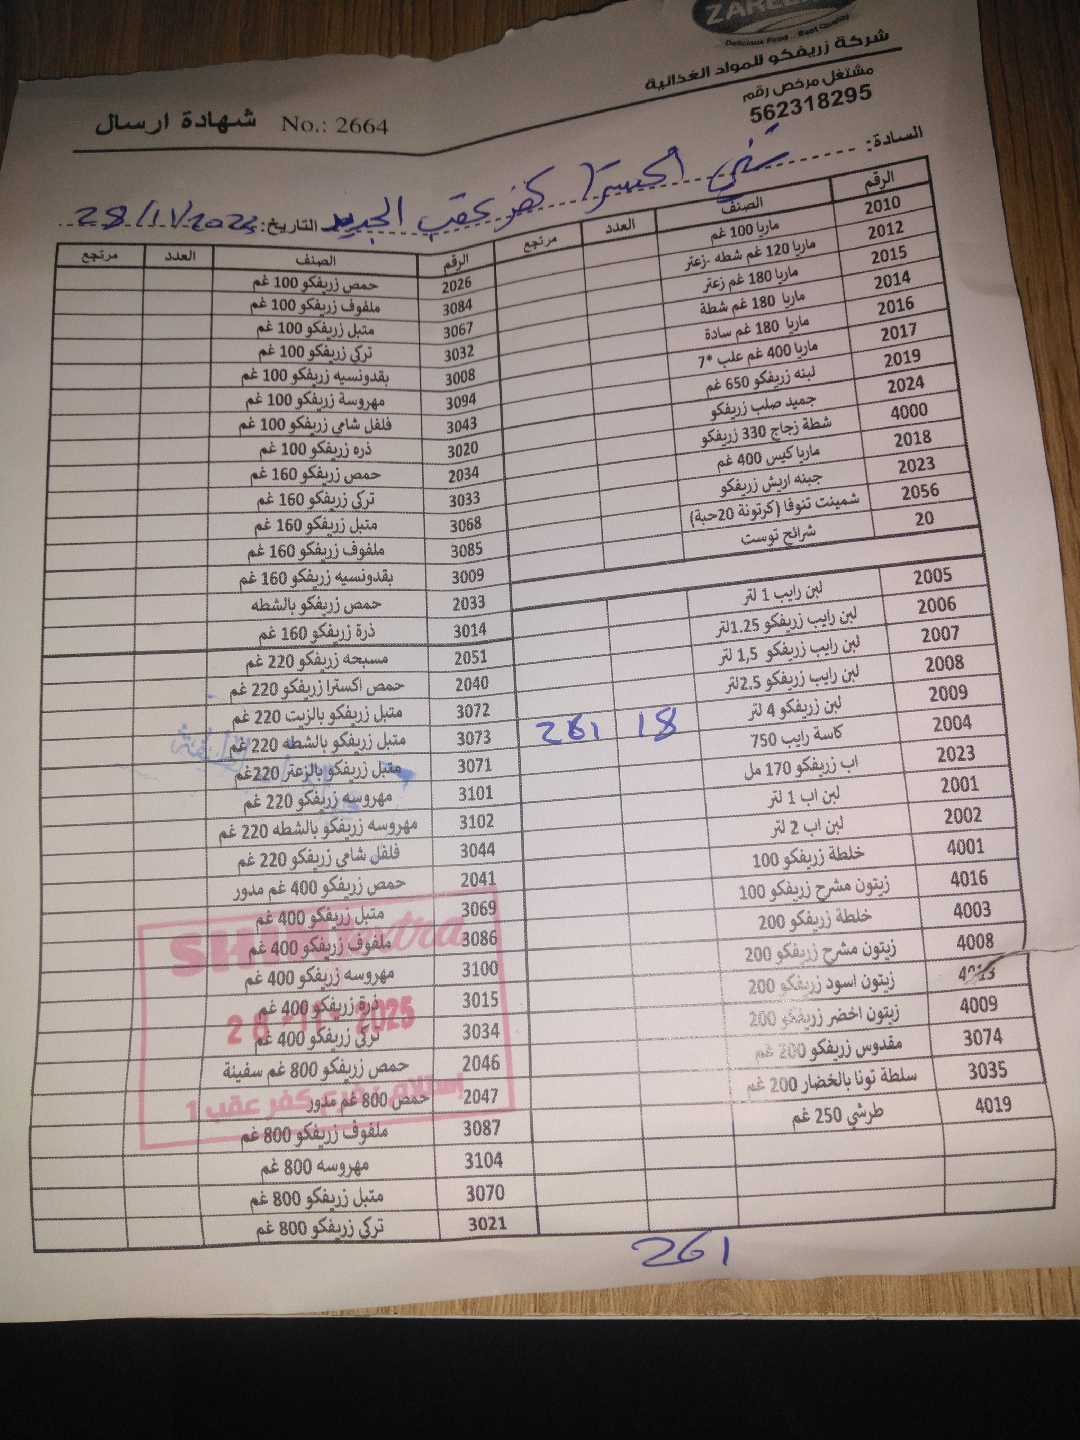 ZAREE
Delicious Food - Best Quality
شركة زريفكو للمواد الغذائية
مشتغل مرخص رقم
562318295
شهادة ارسال No.: 2664
السادة: كفر عقب الجديد التاريخ:
الرقم الصنف العدد مرتجع
2010 ماريا 100 غم
2012 ماريا 120 غم شطه -زعتر
2015 ماريا 180 غم زعتر
2014 ماريا 180 غم شطة
2016 ماريا 180 غم سادة
2017 ماريا 400 غم علب *7
2019 لبنه زريفكو 650 غم
2024 جميد صلب زريفكو
4000 شطة زجاج 330 زريفكو
2018 ماريا كيس 400 غم
2023 جبنه اريش زريفكو
2056 شمينت تنوفا (كرتونة 20حبة)
20 شرائح توست
2005 لبن رايب 1 لتر
2006 لبن رايب زريفكو 1.25لتر
2007 لبن رايب زريفكو 1,5 لتر
2008 لبن رايب زريفكو 2.5لتر
2009 لبن زريفكو 4 لتر
2004 كاسة رايب 750 18 261
2023 اب زريفكو 170 مل
2001 لبن اب 1 لتر
2002 لبن اب 2 لتر
4001 خلطة زريفكو 100
4016 زيتون مشرح زريفكو 100
4003 خلطة زريفكو 200
4008 زيتون مشرح زريفكو 200
زيتون اسود زريفكو 200
4009 زيتون اخضر زريفكو 200
3074 مقدوس زريفكو 200 غم
3035 سلطة تونا بالخضار 200 غم
4019 طرشي 250 غم
261
الرقم الصنف العدد مرتجع
2026 حمص زريفكو 100 غم
3084 ملفوف زريفكو 100 غم
3067 متبل زريفكو 100 غم
3032 تركي زريفكو 100 غم
3008 بقدونسيه زريفكو 100 غم
3094 مهروسة زريفكو 100 غم
3043 فلفل شامي زريفكو 100 غم
3020 ذره زريفكو 100 غم
2034 حمص زريفكو 160 غم
3033 تركي زريفكو 160 غم
3068 متبل زريفكو 160 غم
3085 ملفوف زريفكو 160 غم
3009 بقدونسيه زريفكو 160 غم
2033 حمص زريفكو بالشطه
3014 ذرة زريفكو 160 غم
2051 مسبحه زريفكو 220 غم
2040 حمص اكسترا زريفكو 220 غم
3072 متبل زريفكو بالزيت 220 غم
3073 متبل زريفكو بالشطه 220 غم
3071 متبل زريفكو بالزعتر 220غم
3101 مهروسه زريفكو 220 غم
3102 مهروسه زريفكو بالشطه 220 غم
3044 فلفل شامي زريفكو 220 غم
2041 حمص زريفكو 400 غم مدور
3069 متبل زريفكو 400 غم
3086 ملفوف زريفكو 400 غم
3100 مهروسه زريفكو 400 غم
3015 ذرة زريفكو 400 غم
3034 تركي زريفكو 400 غم
2046 حمص زريفكو 800 غم سفينة
2047 حمص 800 غم مدور
3087 ملفوف زريفكو 800 غم
3104 مهروسه 800 غم
3070 متبل زريفكو 800 غم
3021 تركي زريفكو 800 غم
extra
2025
كفر عقب 1